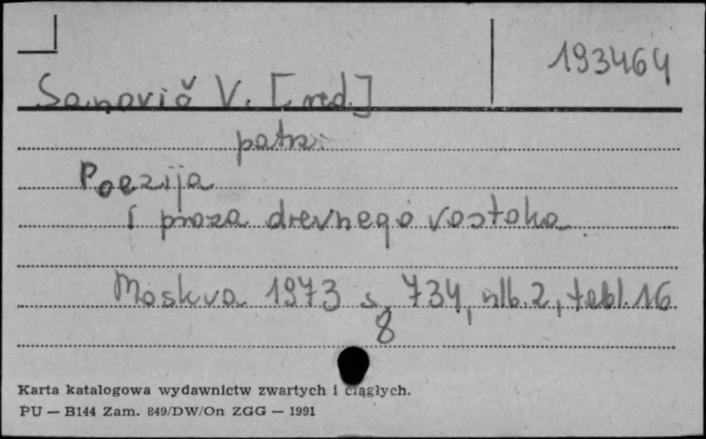 193464
Sanovič V. [red.]
patrz:
Poezija
i proza drevnego vostoka
Moskva 1973 s. 734, nlb. 2, tabl. 16
8
Karta katalogowa wydawnictw zwartych i ciągłych.
PU — B144 Zam. 849/DW/On ZGG — 1991